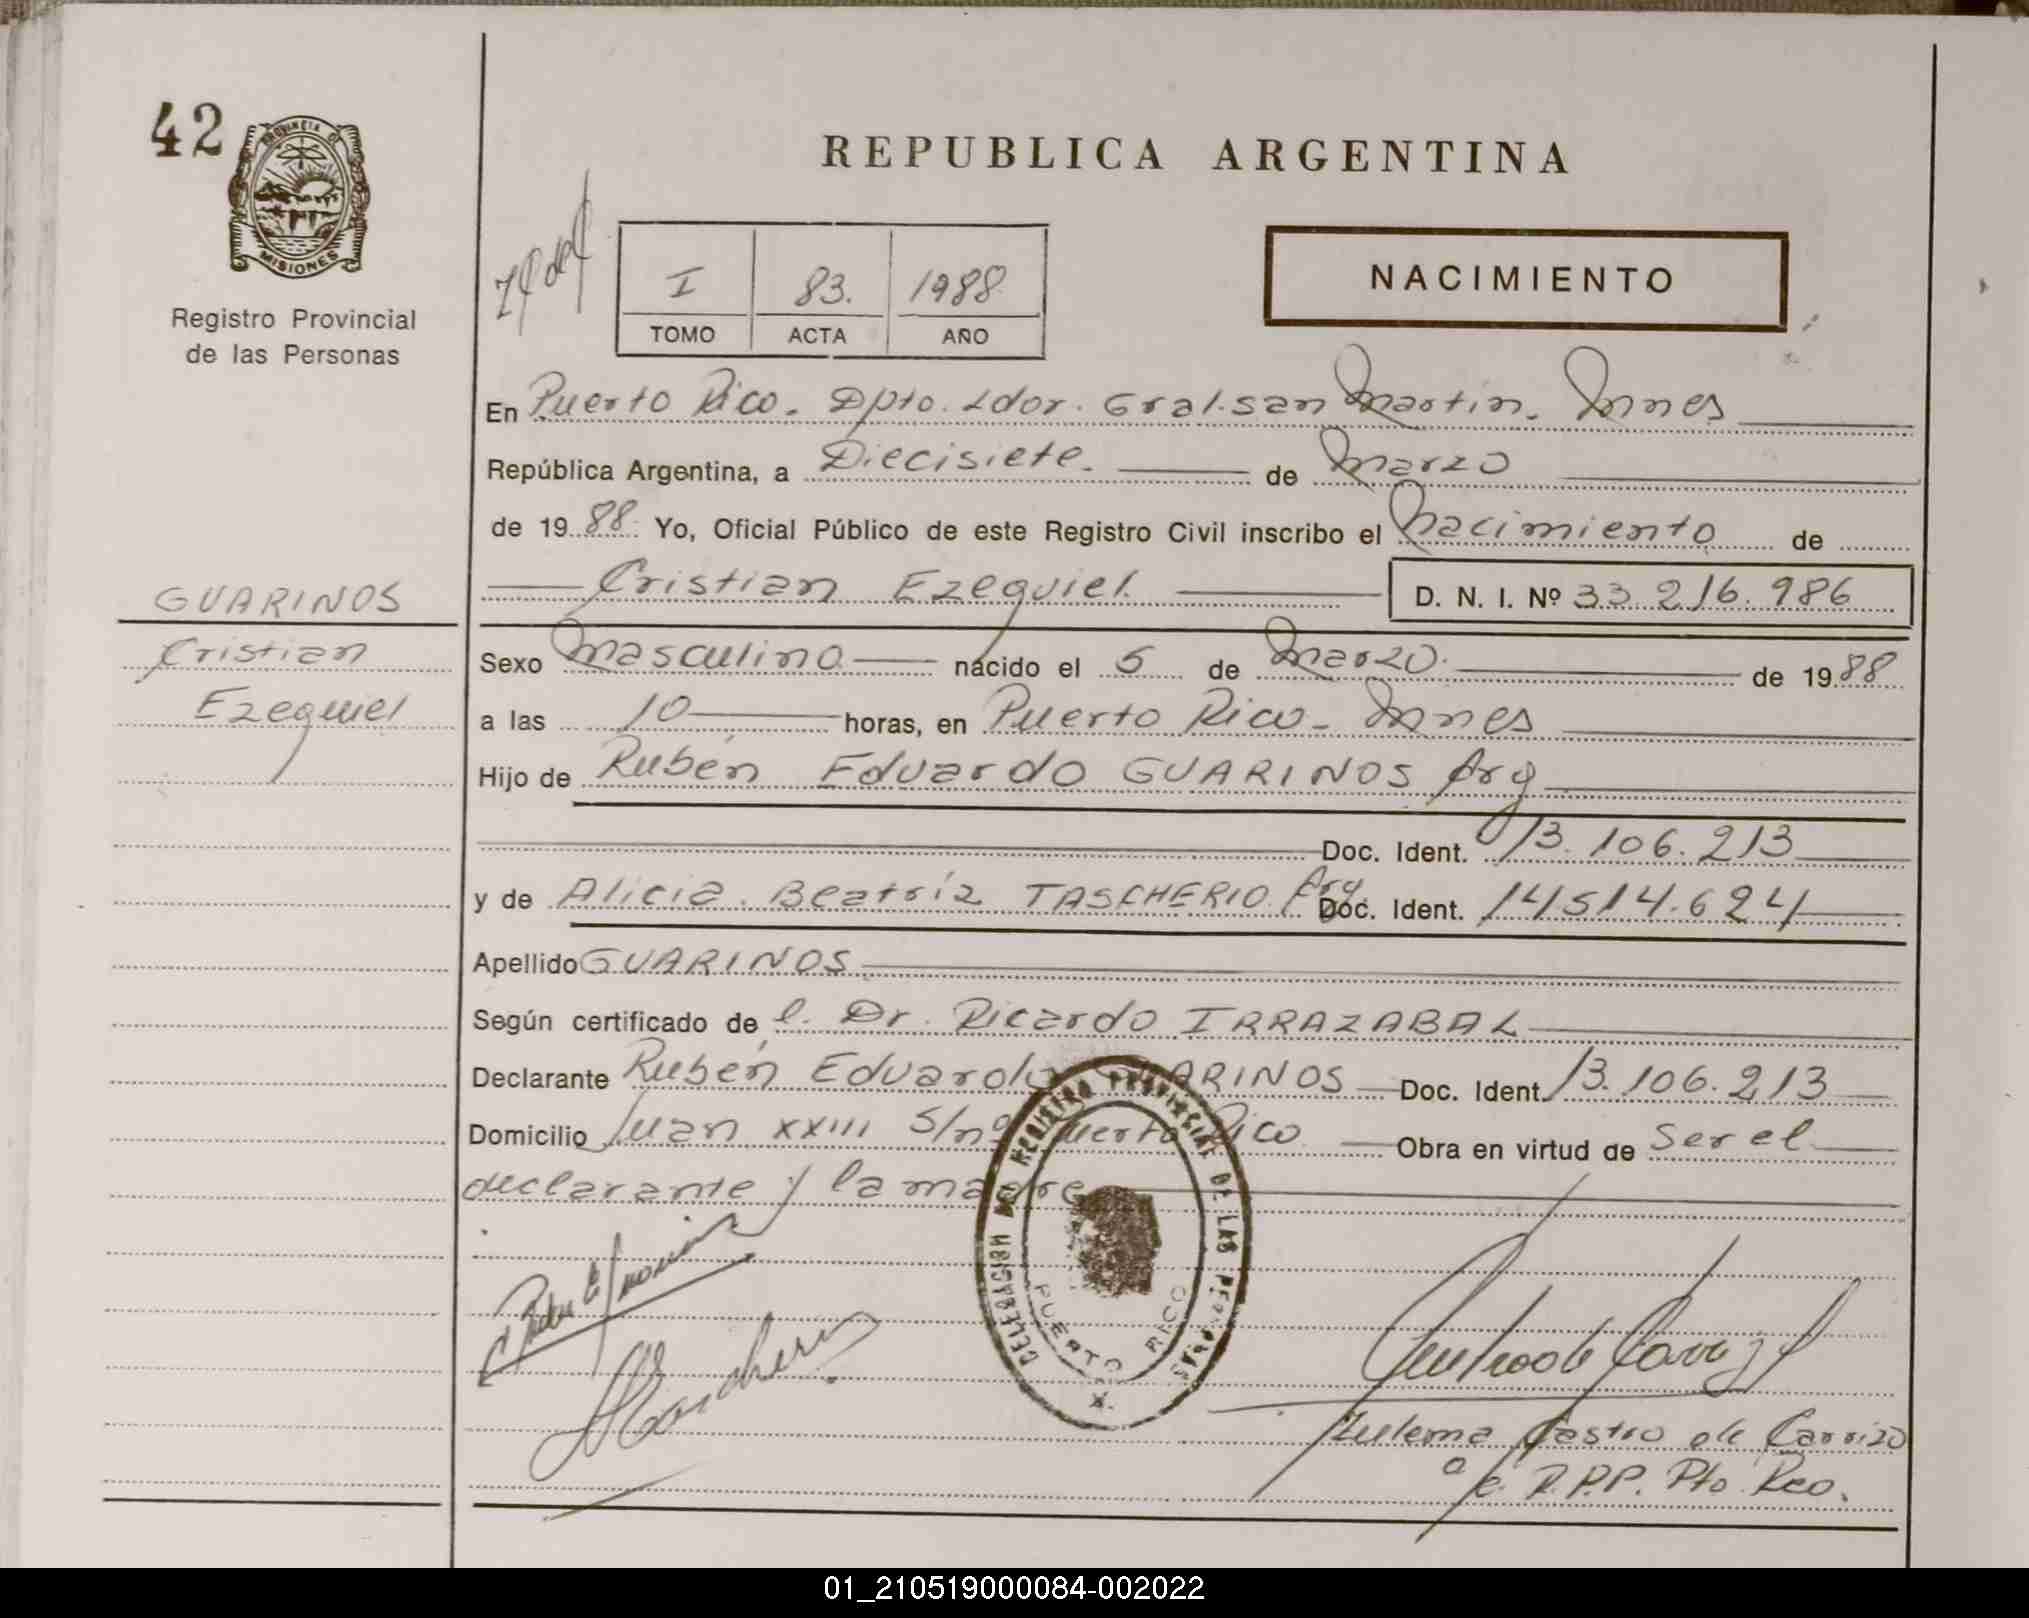 42
PROVINCIA DE
MISIONES
Registro Provincial
de las Personas
REPUBLICA ARGENTINA
I 83. 1988
TOMO ACTA AÑO
NACIMIENTO
En Puerto Rico. Dpto. Ldor. Gral. San Martin. Mnes
República Argentina, a Diecisiete. de Marzo
de 1988. Yo, Oficial Público de este Registro Civil inscribo el Nacimiento de
Cristian Ezequiel D. N. I. Nº 33 216.986
GUARINOS
Cristian
Ezequiel
Sexo Masculino nacido el 5 de Marzo. de 1988
a las 10 horas, en Puerto Rico - Mnes
Hijo de Rubén Eduardo GUARINOS Arg
Doc. Ident. 13.106.213
y de Alicia. Beatríz TASCHERIO. Arg Doc. Ident. 14514.624
Apellido GUARINOS
Según certificado de l. Dr. Ricardo IRRAZABAL
Declarante Rubén Eduardo GUARINOS Doc. Ident. 13.106.213
Domicilio Juan XXIII S/nº Puerto Rico Obra en virtud de Ser el
declarante y la madre
DELEGACION DEL REGISTRO PROVINCIAL DE LAS PERSONAS
PUERTO RICO
Zulema Castro de Carrizo
a/c. R.P.P. Pto. Rco.
01_210519000084-002022